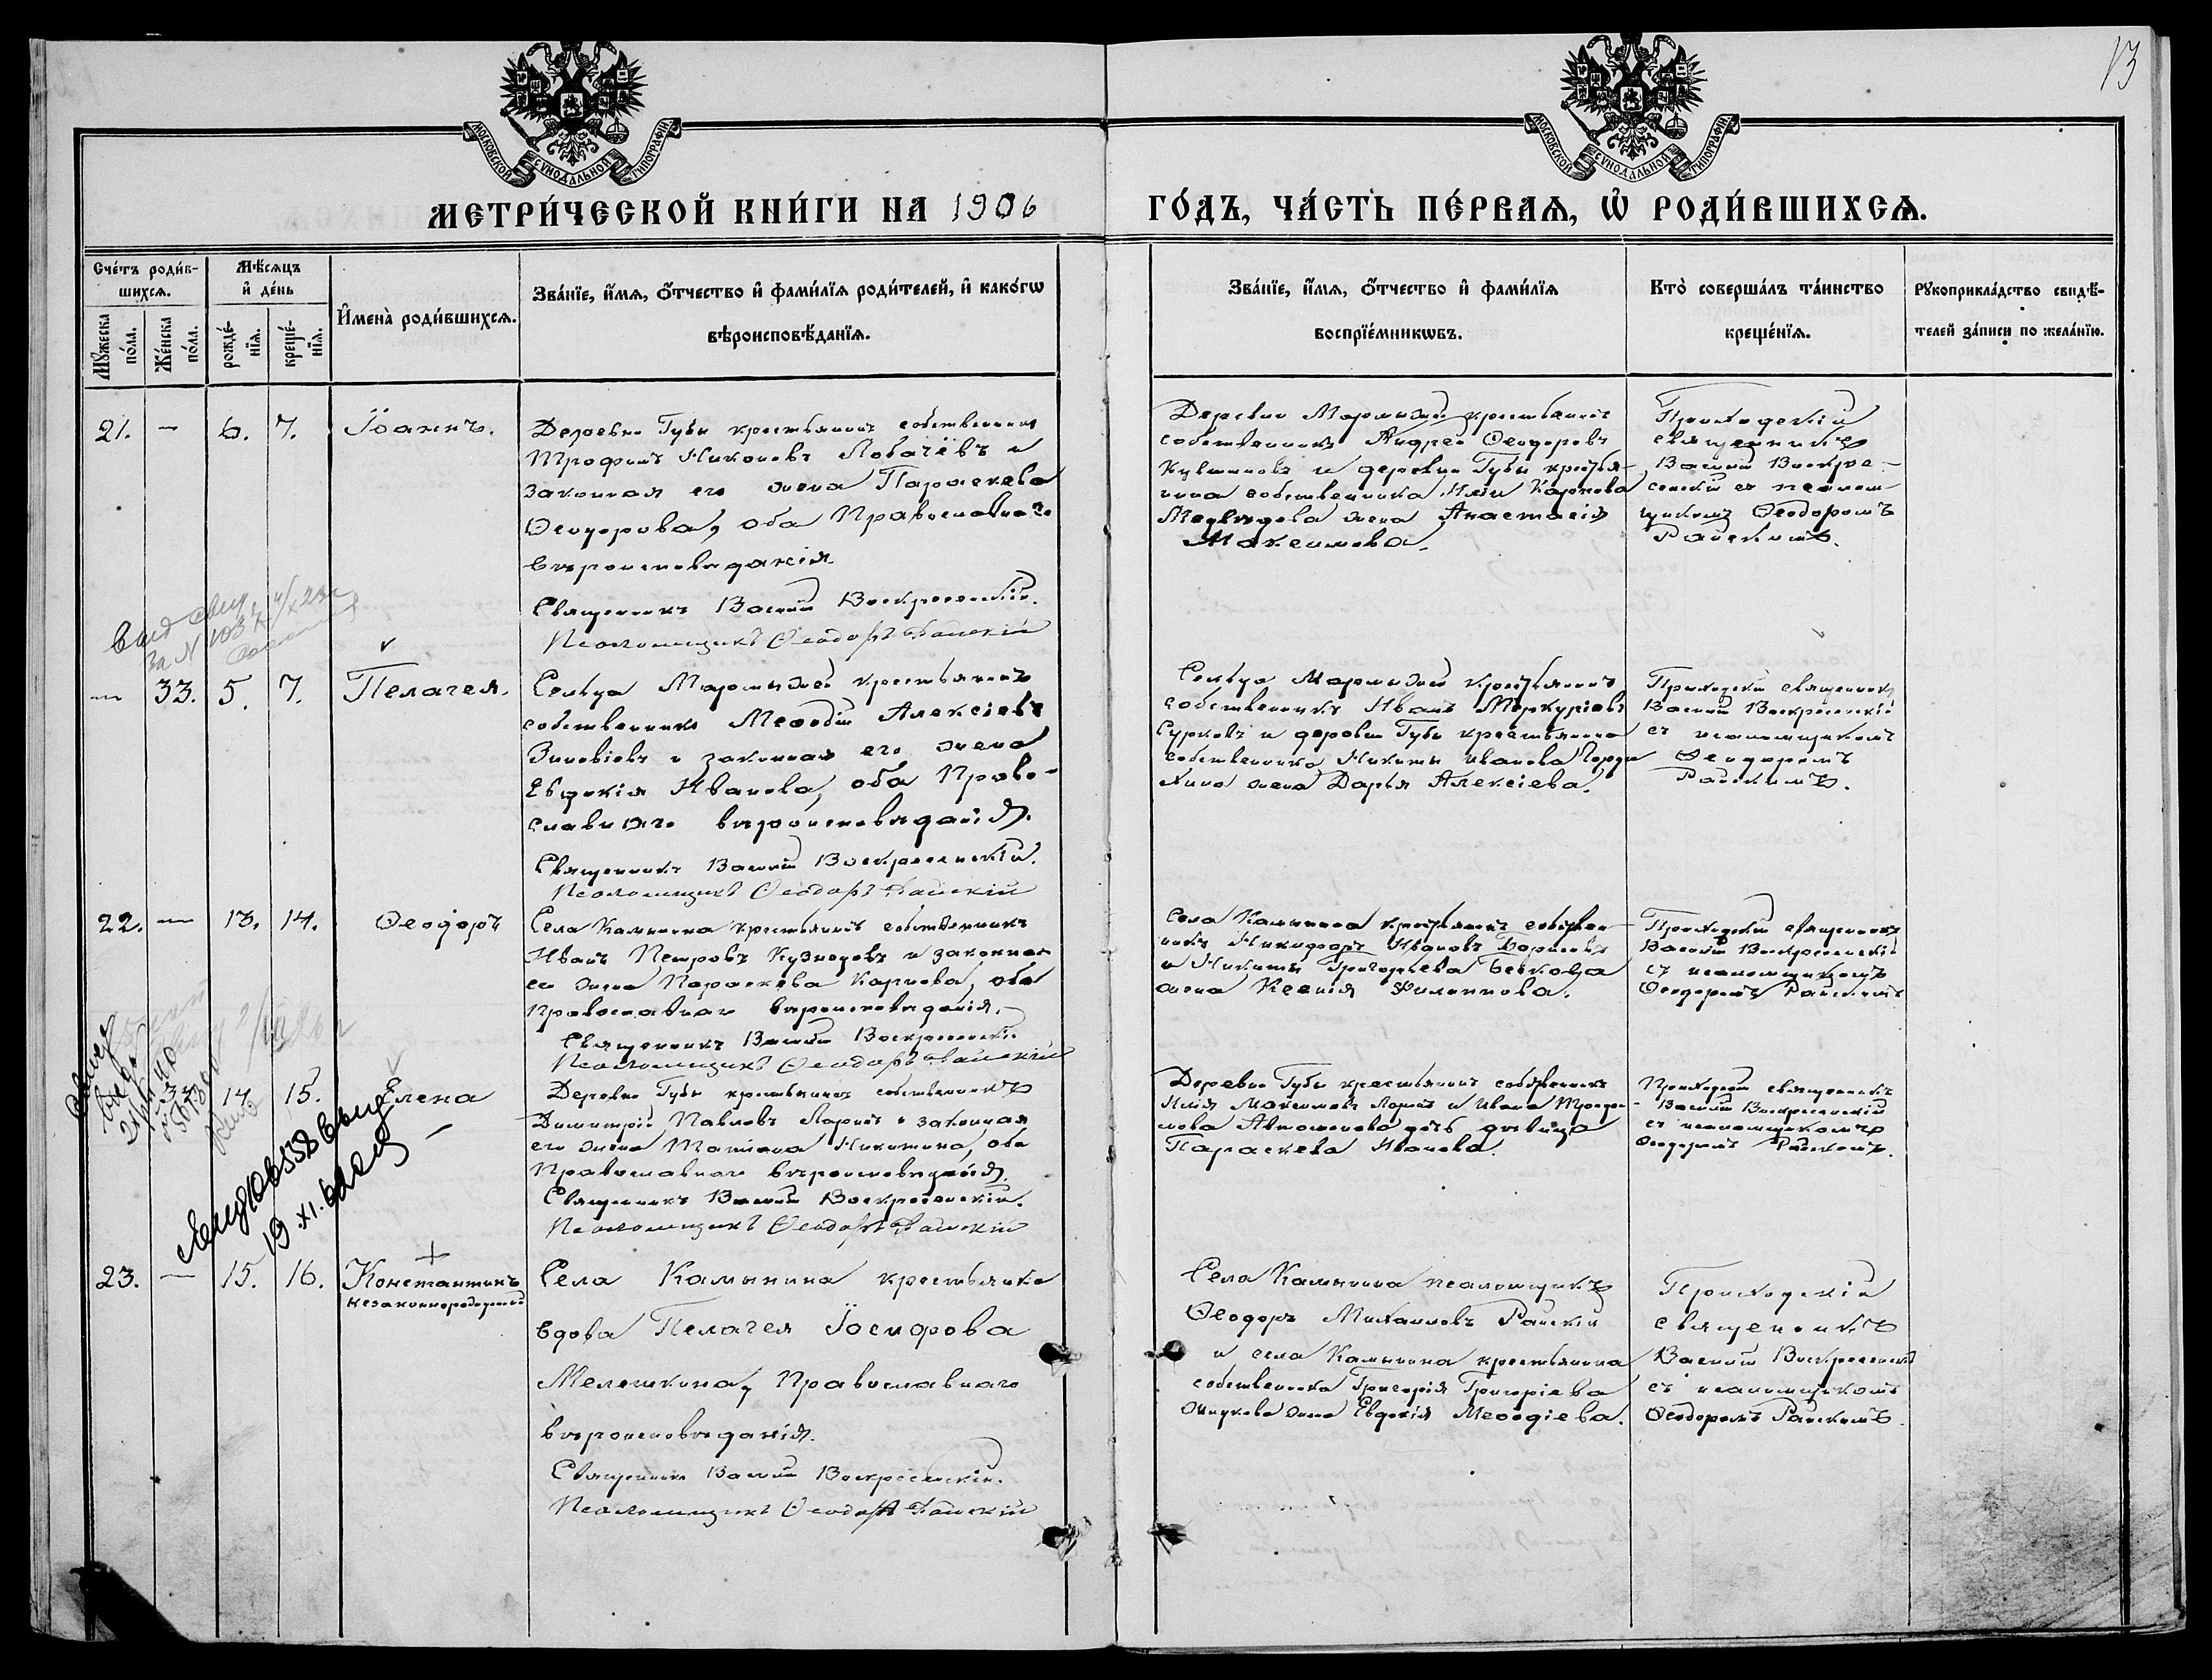 13
МОСКОВСКОЙ СѴНОДАЛЬНОЙ ТИПОГРАФІИ
МОСКОВСКОЙ СѴНОДАЛЬНОЙ ТИПОГРАФІИ
МЕТРИ́ЧЕСКОЙ КНИ́ГИ НА 1906
ГО́ДЪ, ЧА́СТЬ ПЕ́РВАѦ, Ѡ҆ РОДИ́ВШИХСѦ.
Сче́тъ роди́в-
шихсѧ.
Мѣ́сѧцъ
и҆ де́нь
Мꙋ́жеска по́ла.
Же́нска по́ла.
рожде́-нїѧ.
креще́-нїѧ.
И҆мена̀ роди́вшихсѧ.
Зва́нїе, и҆́мѧ, ѻ҆́тчество и҆ фами́лїѧ роди́телей, и҆ како́гѡ
вѣроисповѣ́данїѧ.
Зва́нїе, и҆́мѧ, ѻ҆́тчество и҆ фами́лїѧ
воспрїе́мникѡвъ.
Кто̀ соверша́лъ та́инство
креще́нїѧ.
Рꙋкоприкла́дство свидѣ́-
телей за́писи по жела́нїю.
21. — 6. 7. Іоаннъ.
Деревни Губы крестьянинъ собственникъ
Трофимъ Никоновъ Лобачёвъ и
законная его жена Параскева
Ѳеодорова, оба Православнаго
вѣроисповѣданія
Священникъ Василій Воскресенскій.
Псаломщикъ Ѳеодоръ Райскій
Деревни крестьянинъ
собственникъ Андрей Ѳеодоровъ
и деревни Губы крестья-
нина собственника Иліи Карпова
Медвѣдева жена Анастасія
Максимова.
Приходскій
священникъ
Василій Воскре-
сенскій съ псалом-
щикомъ Ѳеодоромъ
Райскимъ.
— 33. 5. 7. Пелагея.
Сельца крестьянинъ
собственникъ Меѳодій Алексіевъ
Зиновіевъ и законная его жена
Евдокія Иванова, оба Право-
славнаго вѣроисповѣданія.
Священникъ Василій Воскресенскій.
Псаломщикъ Ѳеодоръ Райскій
Сельца крестьянинъ
собственникъ Иванъ Меркуріевъ
Сурковъ и деревни Губы крестьянина
собственника Никиты Иванова
жена Дарья Алексіева.
Приходскій священникъ
Василій Воскресенскій
съ псаломщикомъ
Ѳеодоромъ
Райскимъ.
22. — 13. 14. Ѳеодоръ
Села Камынина крестьянинъ собственникъ
Иванъ Петровъ Кузнецовъ и законная
его жена Параскева Карпова, оба
православнаго вѣроисповѣданія.
Священникъ Василій Воскресенскій.
Псаломщикъ Ѳеодоръ Райскій
Села Камынина крестьянинъ собствен-
никъ Никифоръ Ивановъ Борисовъ
и Никиты Григорьева
жена Ксенія Филиппова.
Приходскій священникъ
Василій Воскресенскій
съ псаломщикомъ
Ѳеодоромъ Райскимъ
34. 14 15. Елена
Деревни Губы крестьянинъ собственникъ
Димитрій Павловъ Ларинъ и законная
его жена Татіана Никитина, оба
Православнаго вѣроисповѣданія.
Священникъ Василій Воскресенскій.
Псаломщикъ Ѳеодоръ Райскій
Деревни Губы крестьянинъ собственникъ
Илія Максимовъ Ларинъ и Ивана
дочь дѣвица
Параскева Иванова.
Приходскій священникъ
Василій Воскресенскій
съ псаломщикомъ
Ѳеодоромъ Райскимъ.
23. — 15. 16. Константинъ
незаконнорожденный
Села Камынина крестьянка
вдова Пелагея Іосифова
Мелешкина, Православнаго
вѣроисповѣданія.
Священникъ Василій Воскресенскій.
Псаломщикъ Ѳеодоръ Райскій
Села Камынина псаломщикъ
Ѳеодоръ Михаиловъ Райскій
и села Камынина крестьянина
собственника Григорія Григоріева
жена Евдокія Меѳодіева.
Приходскій
священникъ
Василій Воскресенскій
съ псаломщикомъ
Ѳеодоромъ Райскимъ.